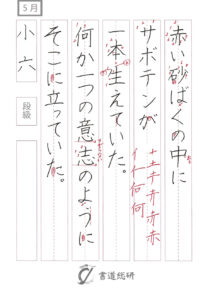 赤い砂ばくの中に
サボテンが
一本生えていた。
何か一つの意志のように
そこに立っていた。
5月
小六
段級
書道総研